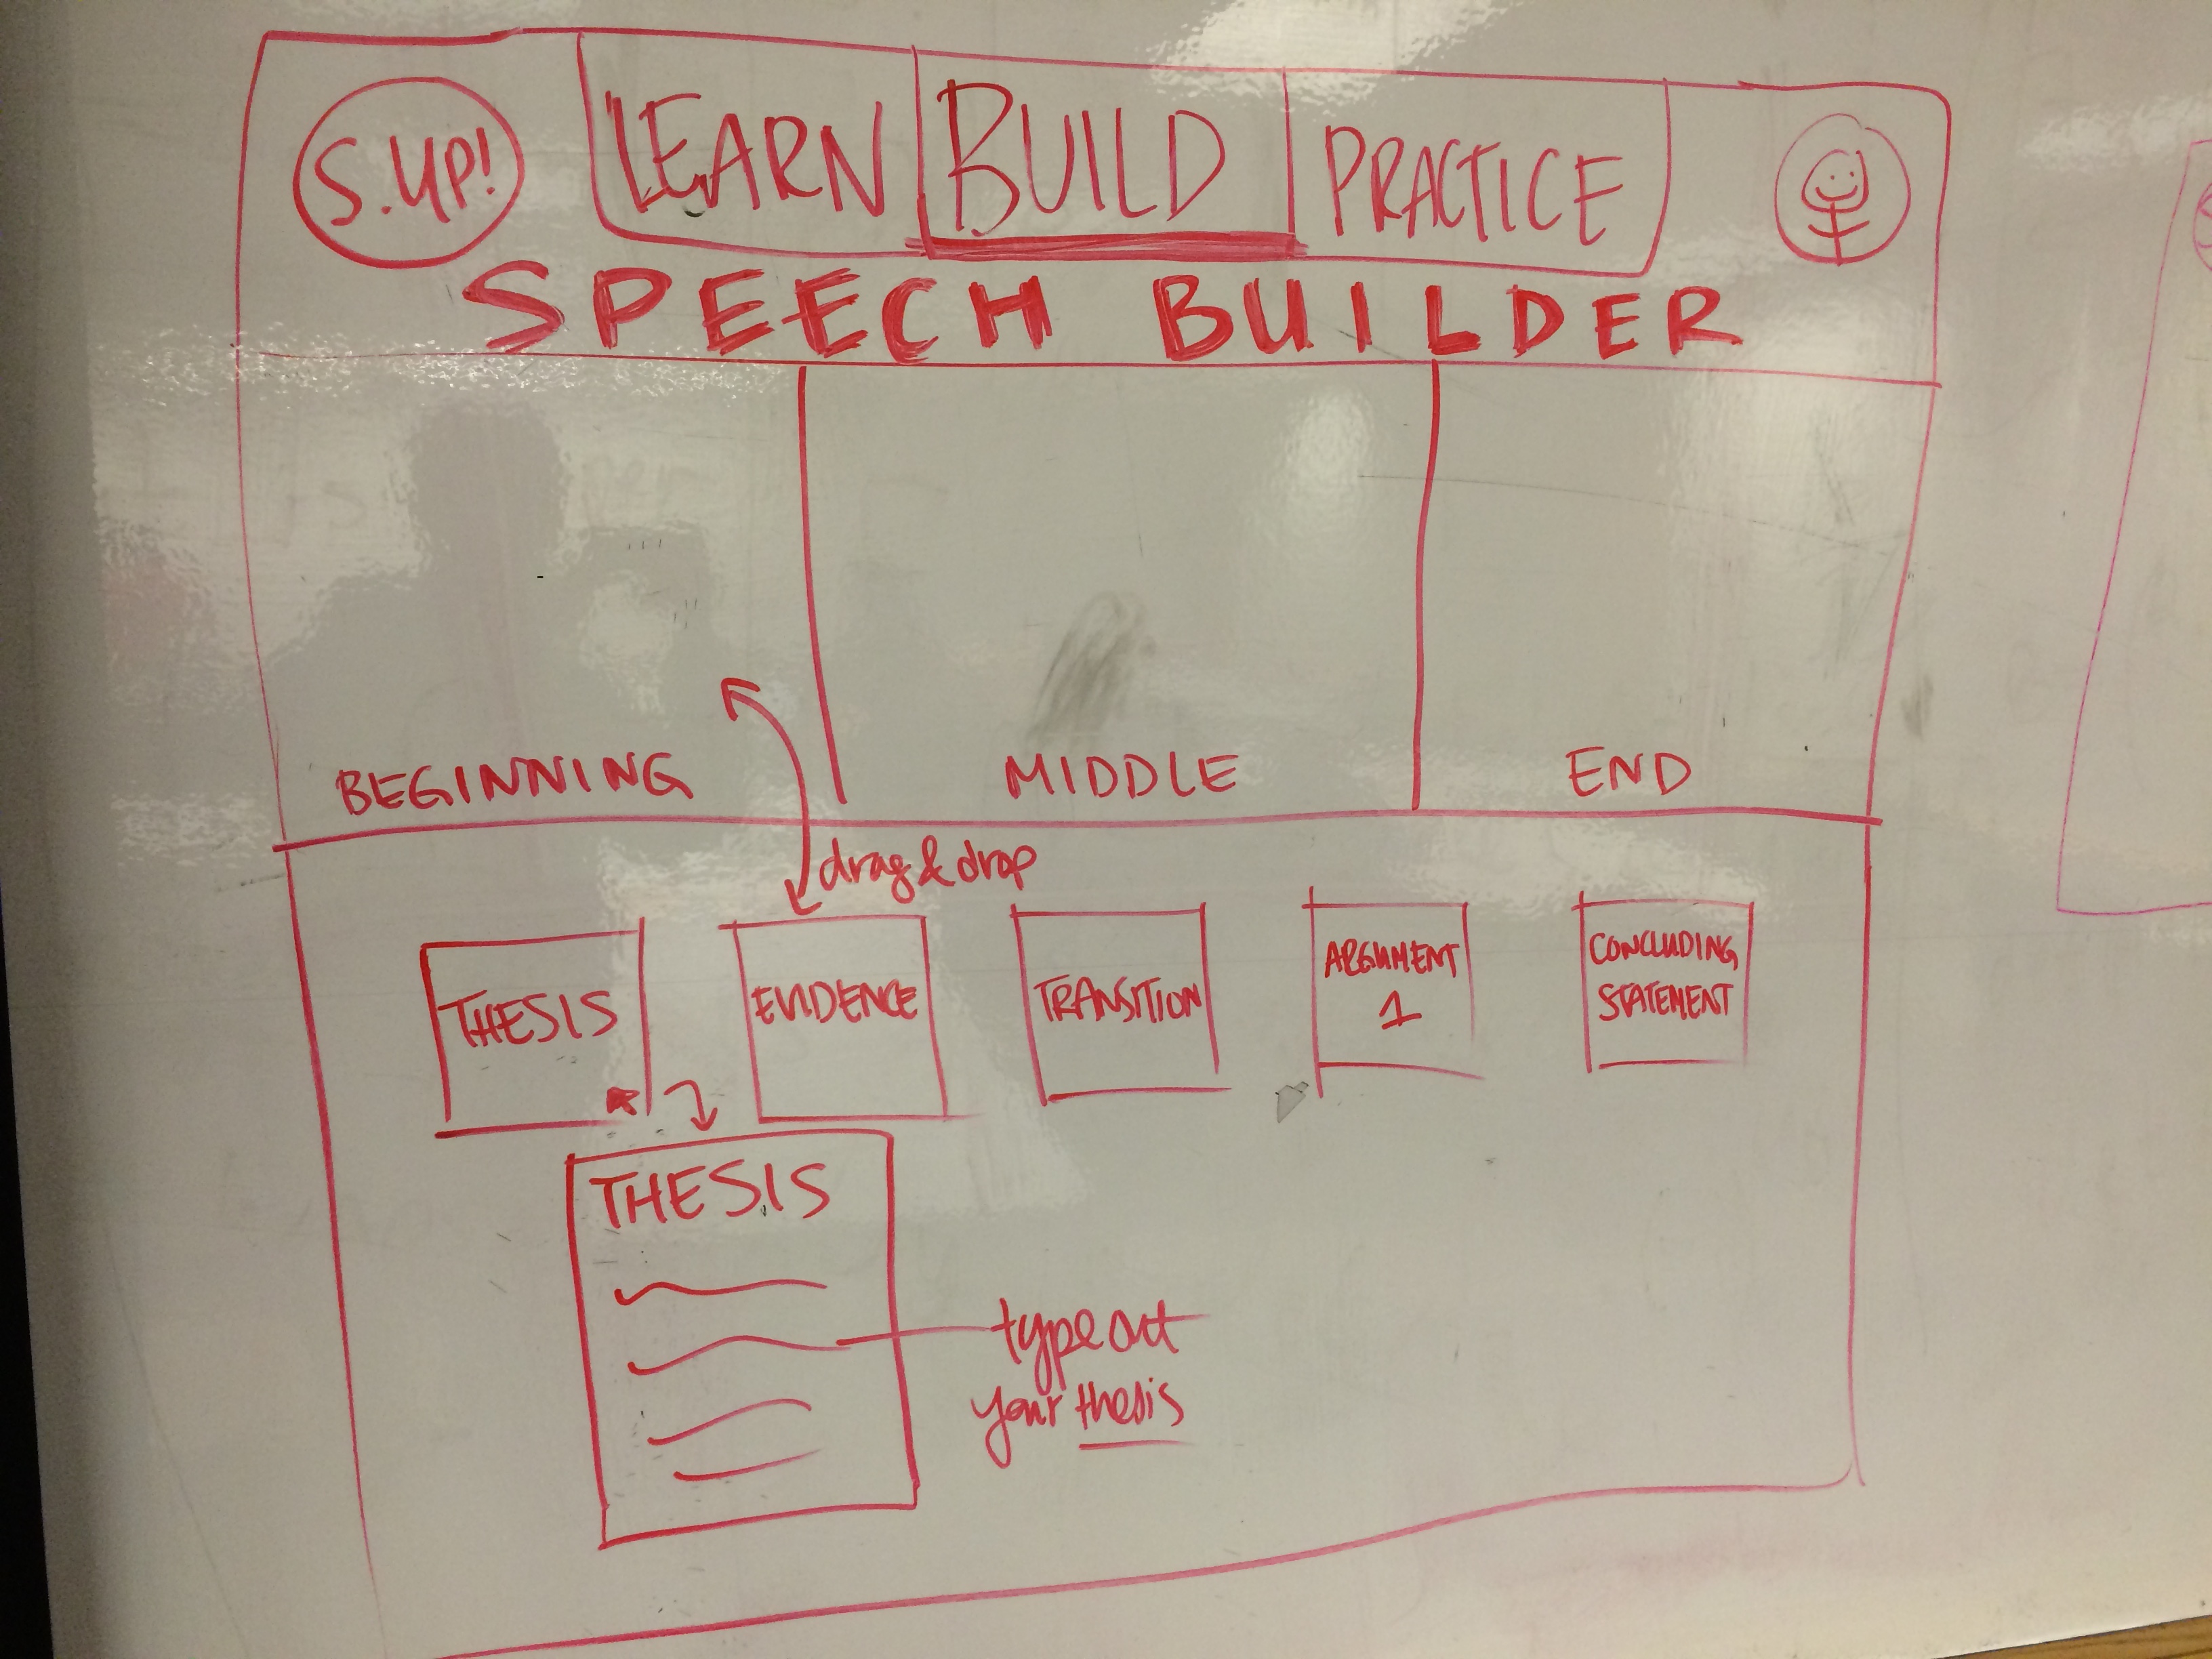 S.UP!
LEARN
BUILD
PRACTICE
SPEECH BUILDER
BEGINNING
MIDDLE
END
drag & drop
THESIS
EVIDENCE
TRANSITION
ARGUMENT
1
CONCLUDING
STATEMENT
THESIS
type out
your thesis